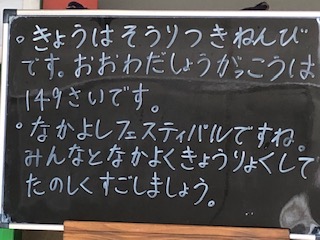 。きょうはそうりつきねんび
です。おおわだしょうがっこうは
149さいです。
。なかよしフェスティバルですね。
みんなとなかよくきょうりょくして
たのしくすごしましょう。